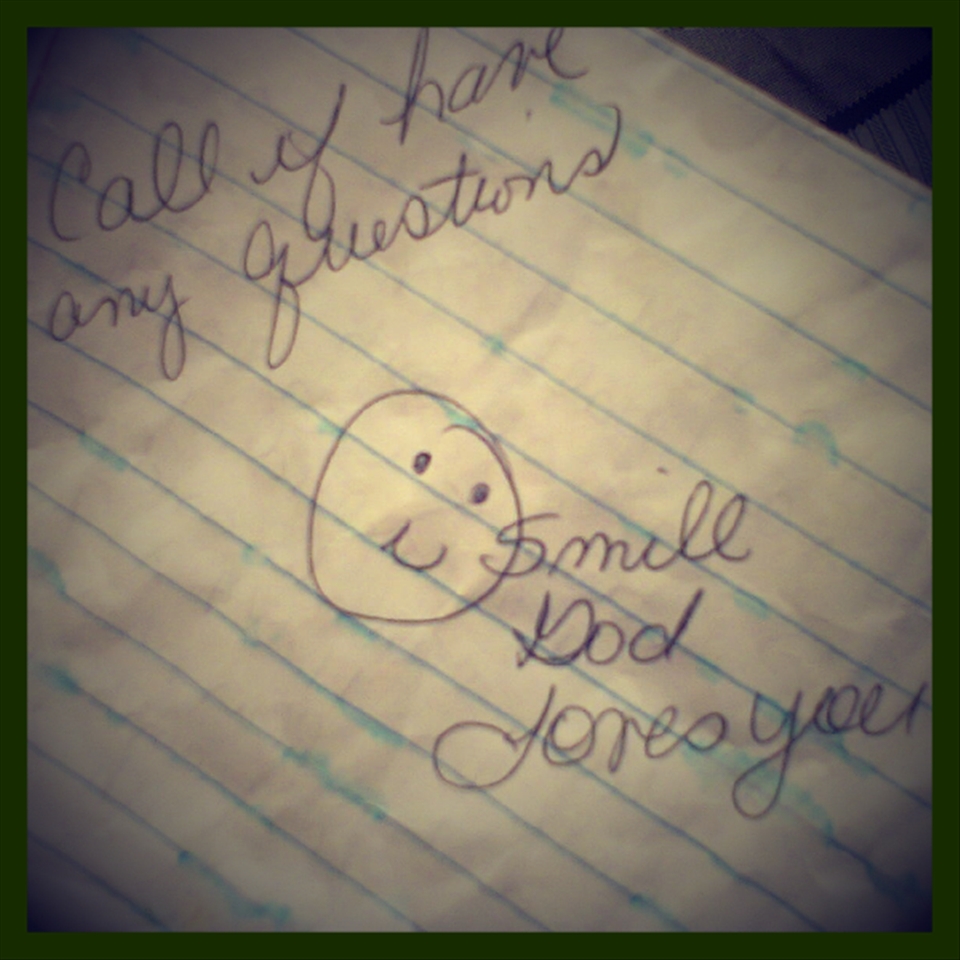 Call if have
any questions
Smill
God
loves you